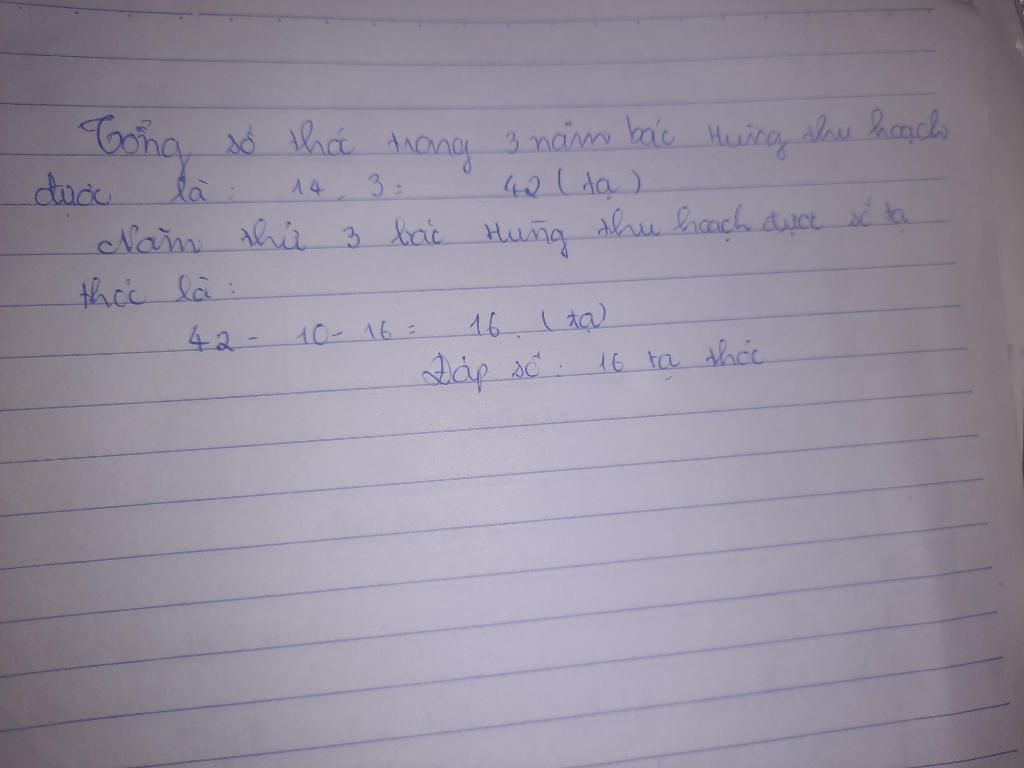 Tổng số thóc trong 3 năm bác Hùng thu hoạch
được là: 14 . 3 = 42 (tạ)
Năm thứ 3 bác Hùng thu hoạch được số tạ
thóc là:
42 - 10 - 16 = 16 (tạ)
Đáp số: 16 tạ thóc